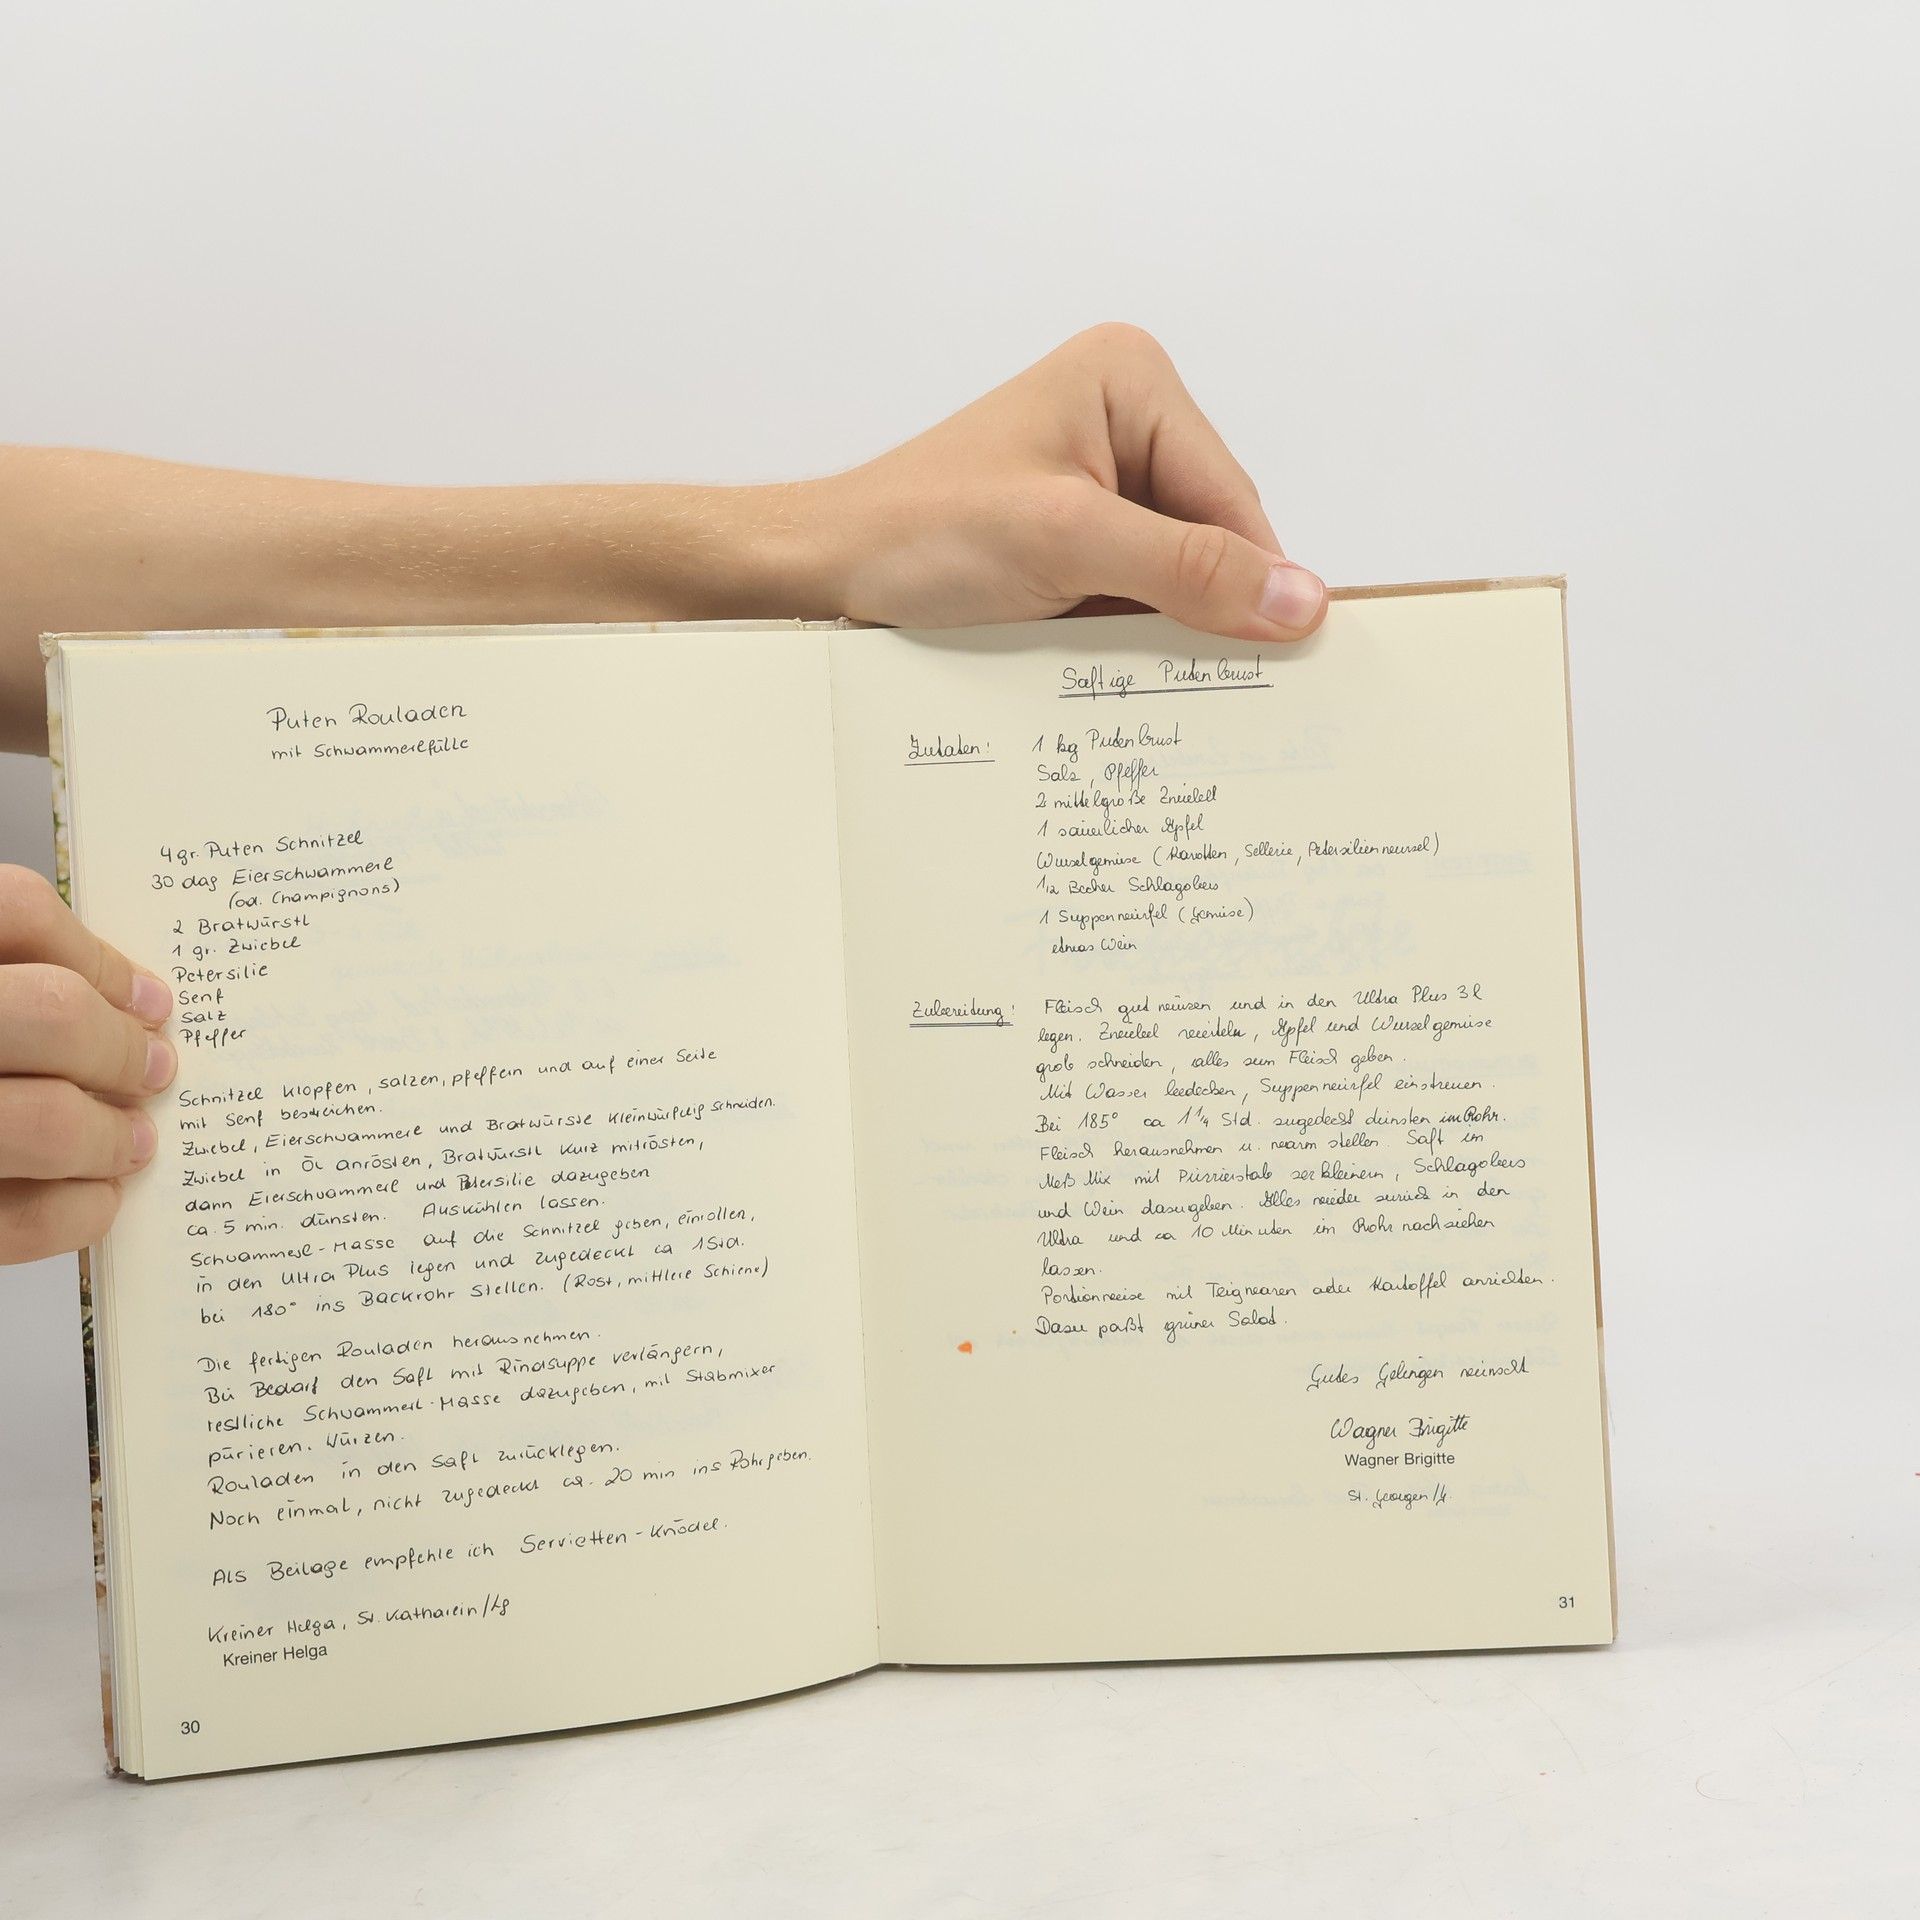 Puten Rouladen
mit Schwammerlfülle
4 gr. Puten Schnitzel
30 dag Eierschwammerl
(od. Champignons)
2 Bratwürstl
1 gr. Zwiebel
Petersilie
Senf
Salz
Pfeffer
Schnitzel klopfen, salzen, pfeffern und auf einer Seite
mit Senf bestreichen.
Zwiebel, Eierschwammerl und Bratwürste kleinwürfelig schneiden.
Zwiebel in Öl anrösten, Bratwürstl kurz mitrösten,
dann Eierschwammerl und Petersilie dazugeben
ca. 5 min. dünsten. Auskühlen lassen.
Schwammerl-Masse auf die Schnitzel geben, einrollen,
in den Ultra Plus legen und zugedeckt ca 1 Std.
bei 180° ins Backrohr stellen. (Rost, mittlere Schiene)
Die fertigen Rouladen herausnehmen.
Bei Bedarf den Saft mit Rindsuppe verlängern,
restliche Schwammerl-Masse dazugeben, mit Stabmixer
pürieren. Würzen.
Rouladen in den Saft zurücklegen.
Noch einmal, nicht zugedeckt ca. 20 min ins Rohr geben.
Als Beilage empfehle ich Servietten-Knödel.
Kreiner Helga, St. Katharein/Lg
Kreiner Helga
30
Saftige Putenbrust
Zutaten: 1 kg Putenbrust
Salz, Pfeffer
2 mittelgroße Zwiebell
1 säuerlicher Apfel
Wurzelgemüse (Karotten, Sellerie, Petersilienwurzel)
1/2 Becher Schlagobers
1 Suppenwürfel (Gemüse)
etwas Wein
Zubereitung: Fleisch gut würzen und in den Ultra Plus 3 l
legen. Zwiebel vierteln, Apfel und Wurzelgemüse
grob schneiden, alles zum Fleisch geben.
Mit Wasser bedecken, Suppenwürfel einstreuen.
Bei 185° ca 1 1/4 Std. zugedeckt dünsten im Rohr.
Fleisch herausnehmen u. warm stellen. Saft im
Meß Mix mit Pürrierstab zerkleinern, Schlagobers
und Wein dazugeben. Alles wieder zurück in den
Ultra und ca 10 Minuten im Rohr nachziehen
lassen.
Portionweise mit Teigwaren oder Kartoffel anrichten.
Dazu paßt grüner Salat.
Gutes Gelingen wünscht
Wagner Brigitte
Wagner Brigitte
St. Georgen/
31